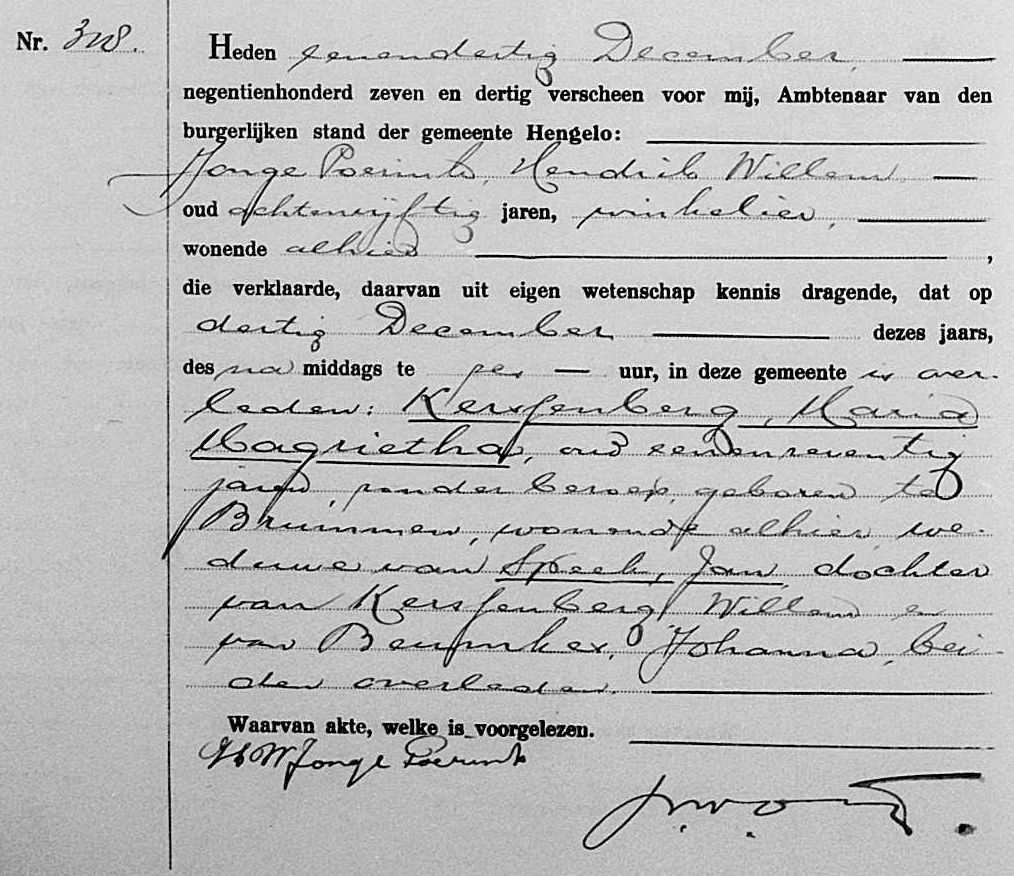 Nr. 318.
Heden eenendertig December,
negentienhonderd zeven en dertig verscheen voor mij, Ambtenaar van den
burgerlijken stand der gemeente Hengelo:
Jonge Poerink, Hendrik Willem,
oud achtenvijftig jaren, winkelier,
wonende alhier,
die verklaarde, daarvan uit eigen wetenschap kennis dragende, dat op
dertig December dezes jaars,
des na middags te zes uur, in deze gemeente is over-
leden: Kerssenberg, Maria
Magrietha, oud eenenzeventig
jaren, zonder beroep, geboren te
Brummen, wonende alhier we-
duwe van Speek, Jan, dochter
van Kerssenberg, Willem en
van Johanna, bei-
den overleden.
Waarvan akte, welke is voorgelezen.
HW Jonge Poerink